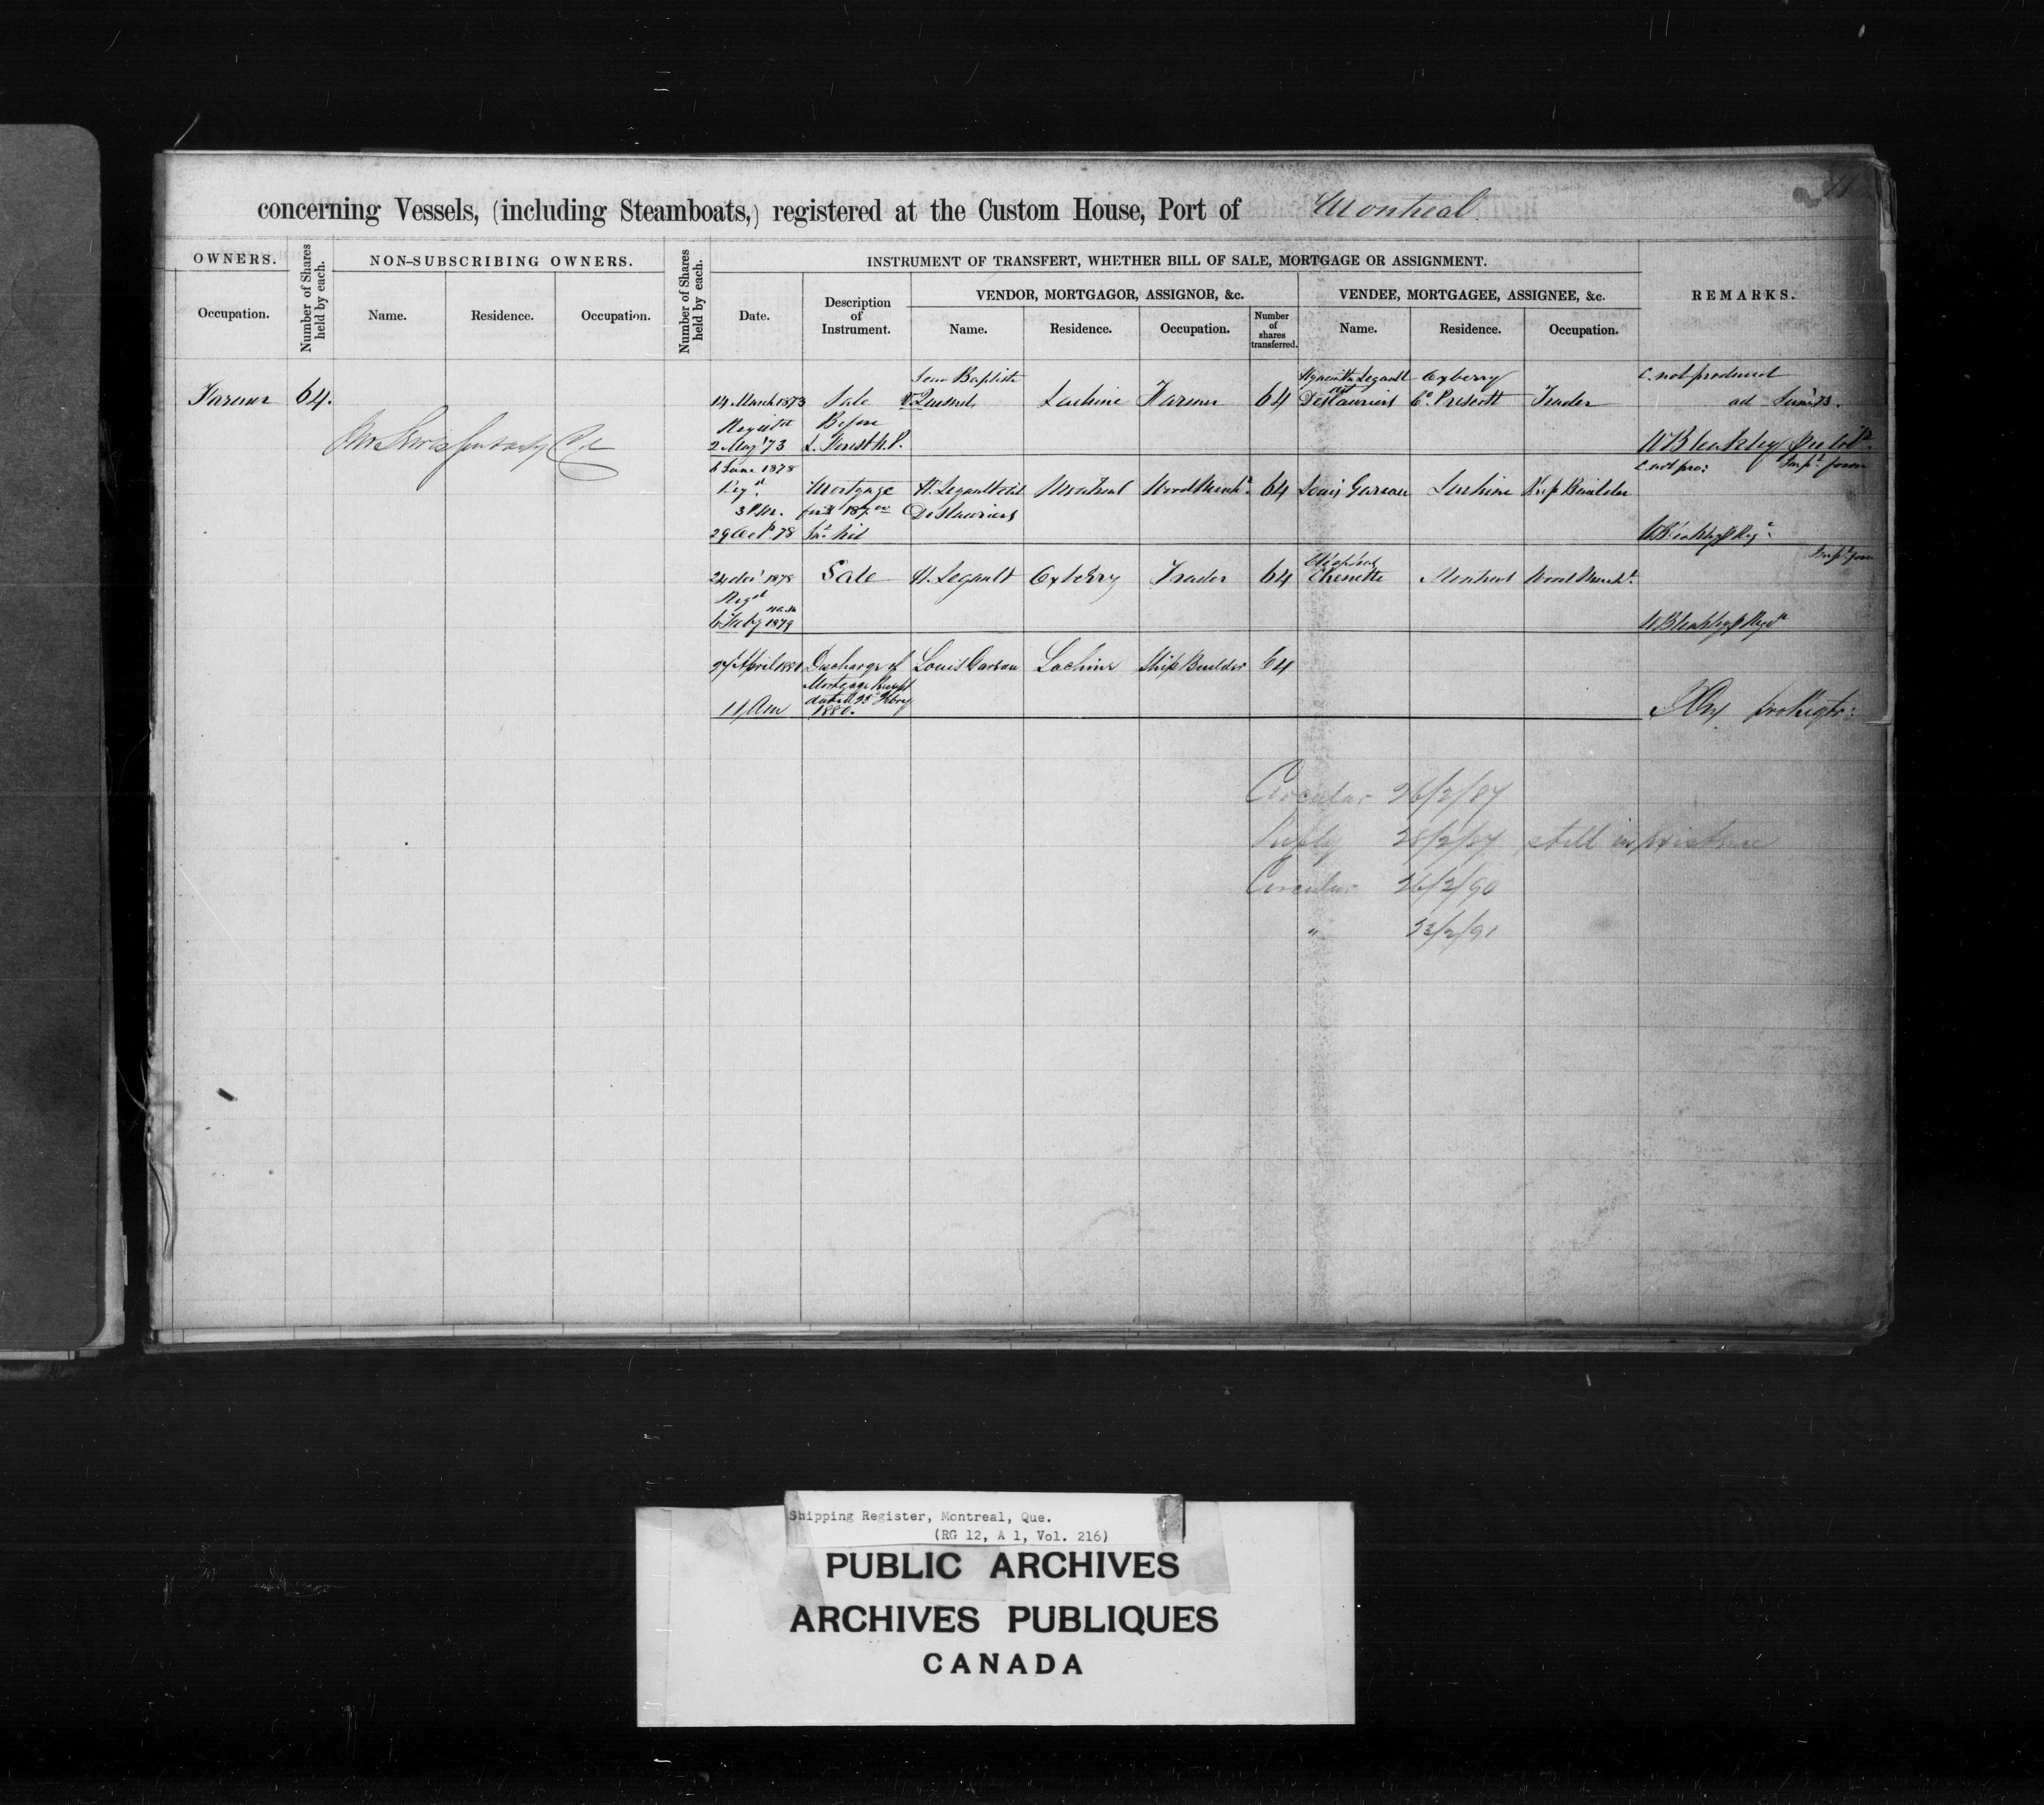 concerning Vessels, (including Steamboats,) registered at the Custom House, Port of Montreal
OWNERS.
Number of Shares held by each.
NON-SUBSCRIBING OWNERS.
Number of Shares held by each.
INSTRUMENT OF TRANSFERT, WHETHER BILL OF SALE, MORTGAGE OR ASSIGNMENT.
REMARKS.
VENDOR, MORTGAGOR, ASSIGNOR, &c.
VENDEE, MORTGAGEE, ASSIGNEE, &c.
Occupation.
Name.
Residence.
Occupation.
Date.
Description of Instrument.
Name.
Residence.
Occupation.
Number of shares transferred.
Name.
Residence.
Occupation.
Jean Baptiste
Hyacinthe Legault
C. not produced
Farmer 64.
14 March 1873 Sale Lachine Farmer 64 dit Deslauriers Co. Prescott Trader
Before
2 May '73
W Bleakley
6 June 1878
Mortgage H. Legault dit Montreal 64 Louis Gareau Lachine Ship Builder
3 P.M. Deslauriers
29 Oct. 78
1878 Sale H. Legault Trader 64 Chenette Montreal Wood Mercht.
Regd
6 Feby 1879
27 April 1880 Discharge of Louis Gareau Lachine Ship Builder 64
Mortgage
11 Am dated 25 Febry
1880.
Circular 26/2/87
Reply 28/2/87 still in existence
Circular 26/2/90
" 23/2/91
Shipping Register, Montreal, Que.
(RG 12, A 1, Vol. 216)
PUBLIC ARCHIVES
ARCHIVES PUBLIQUES
CANADA